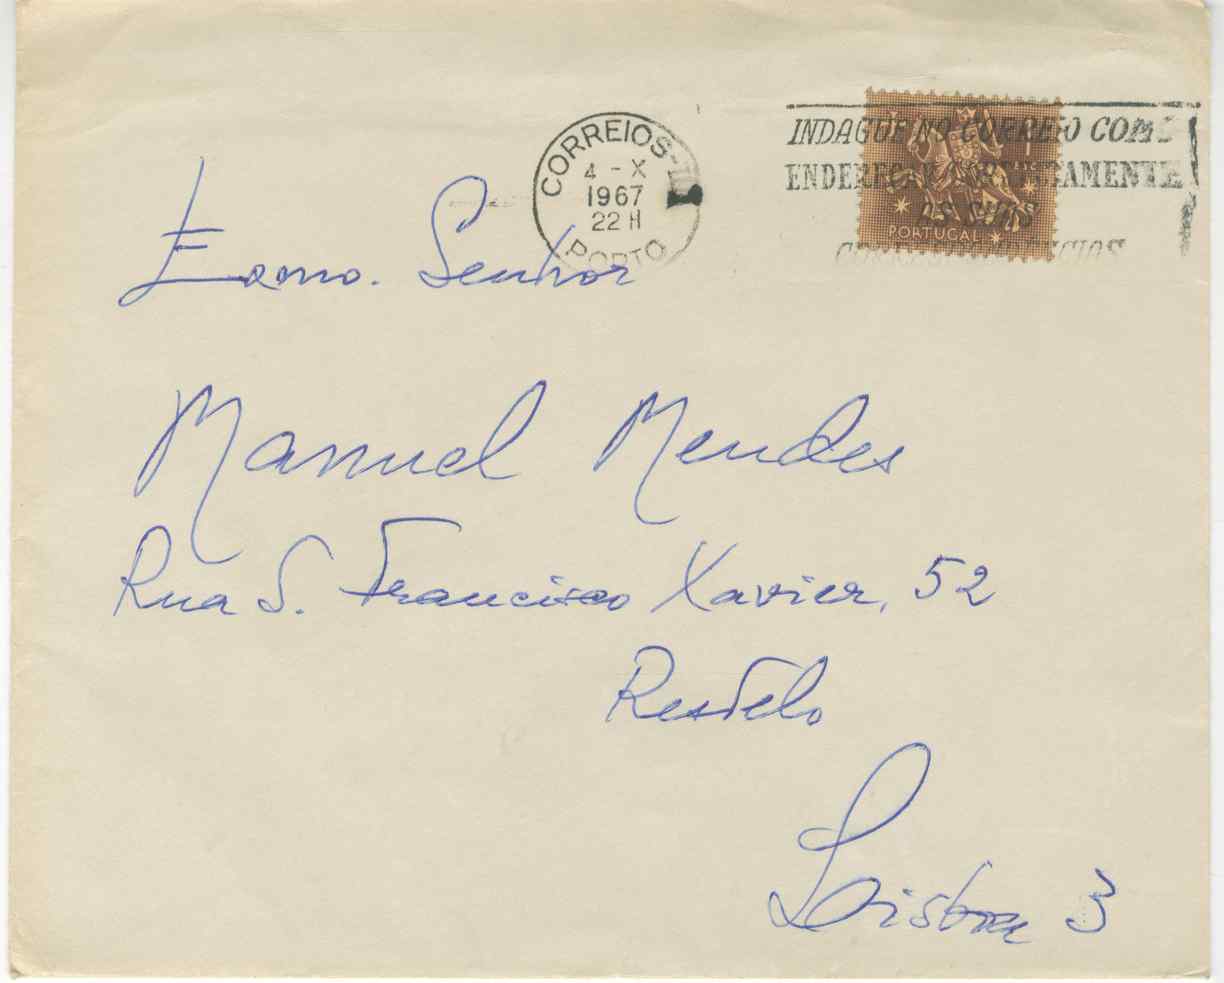 CORREIOS-
4 - X
1967
22 H
PORTO
INDAGUE NO CORREIO COMO
ENDEREÇAR CORRECTAMENTE
AS SUAS
PORTUGAL
Exmo. Senhor
Manuel Mendes
Rua S. Francisco Xavier, 52
Restelo
Lisboa 3